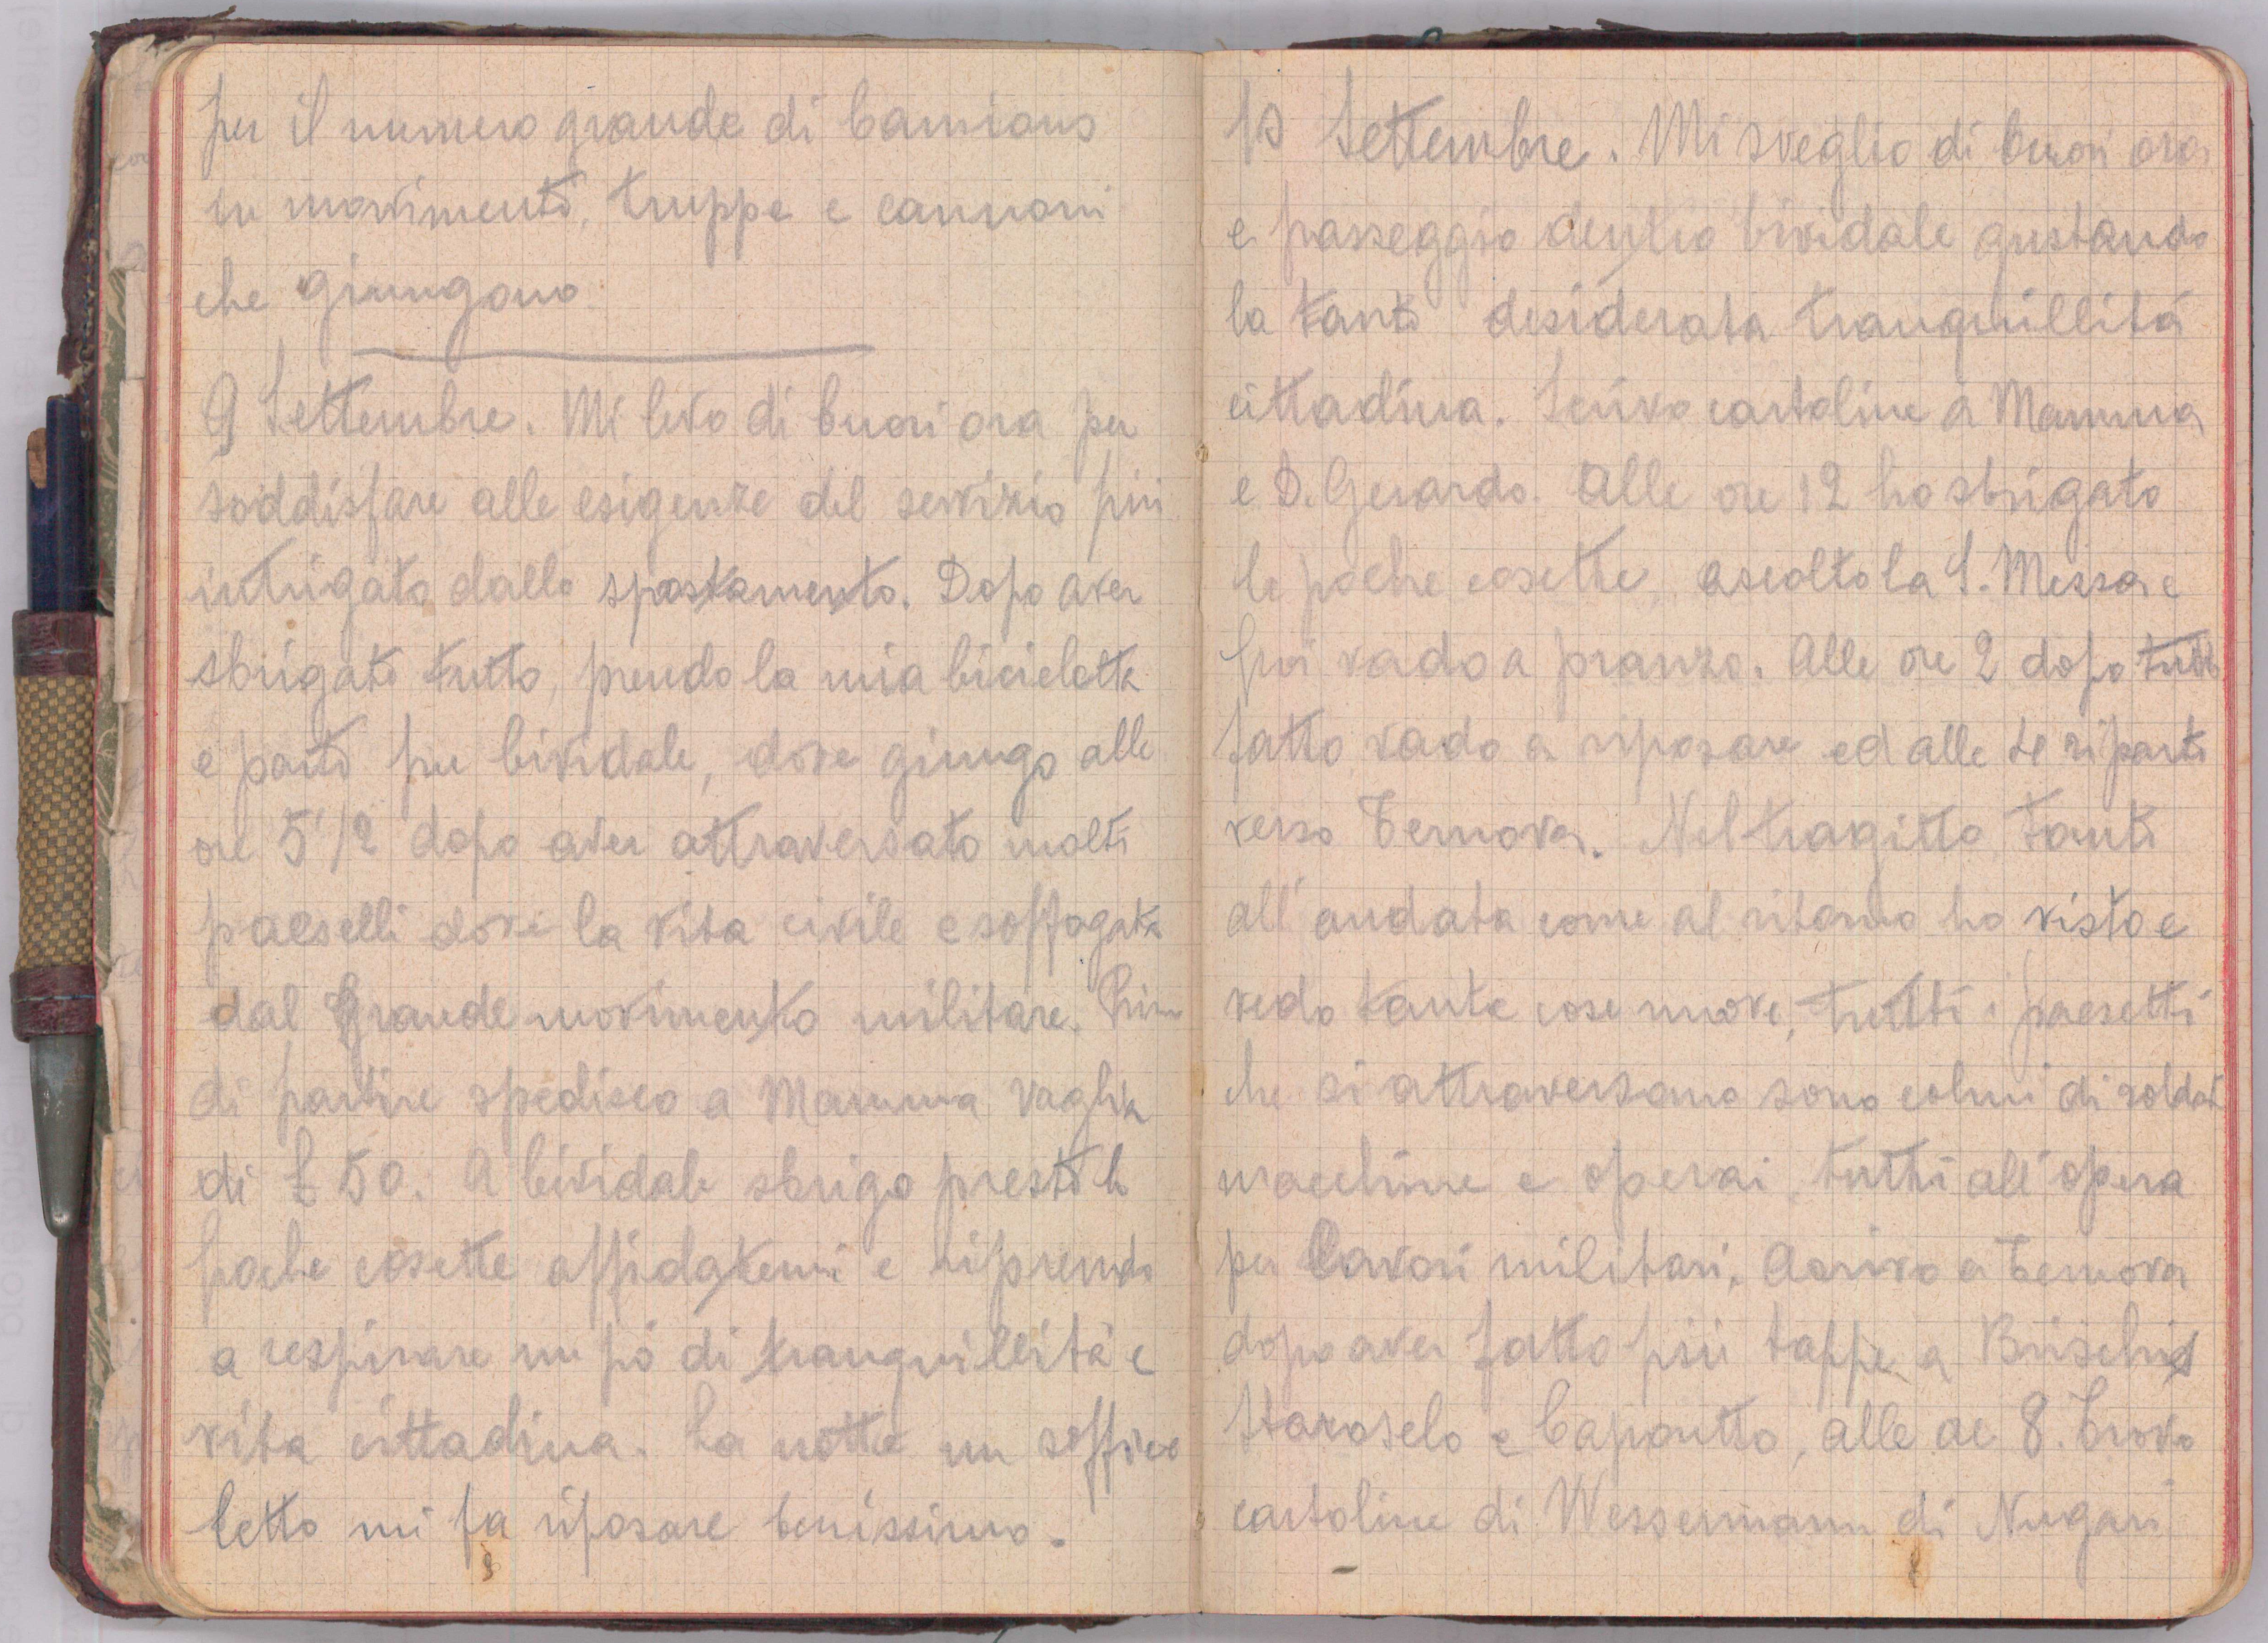 per il numero grande di Camions
in movimento, truppe e cannoni
che giungono
9 Settembre. Mi levo di buon'ora per
soddisfare alle esigenze del servizio più
intrigato dallo spostamento. Dopo aver
sbrigato tutto, prendo la mia bicicletta
e parto per Cividale, dove giungo alle
ore 5 1/2 dopo aver attraversato molti
paeselli dove la vita civile e soffogata
dal grande movimento militare. Prima
di partire spedisco a Mamma vaglia
di £ 50. A Cividale sbrigo presto le
poche cosette affidatemi e riprendo
a respirare un pò di tranquillità e
vita cittadina. La notte un soffice
letto mi fa riposare benissimo.
10 Settembre. Mi sveglio di buon ora
e passeggio dentro Cividale gustando
la tanto desiderata tranquillità
cittadina. Scrivo cartoline a Mamma
e D. Gerardo. Alle ore 12 ho sbrigato
le poche cosette, ascolto la S. Messa e
poi vado a pranzo. Alle ore 2 dopo tutto
fatto vado a riposare ed alle 4 riparto
verso Ternova. Nel tragitto tanto
all'andata come al ritorno ho visto e
vedo tante cose nuove, tutti i paesetti
che si attraversano sono colmi di soldati
macchine e operai, tutti all'opera
per lavori militari. Arrivo a Ternova
dopo aver fatto più tappe a Brischis
Staroselo e Caporetto, alle ore 8. Trovo
cartoline di Wessermann di Nugari